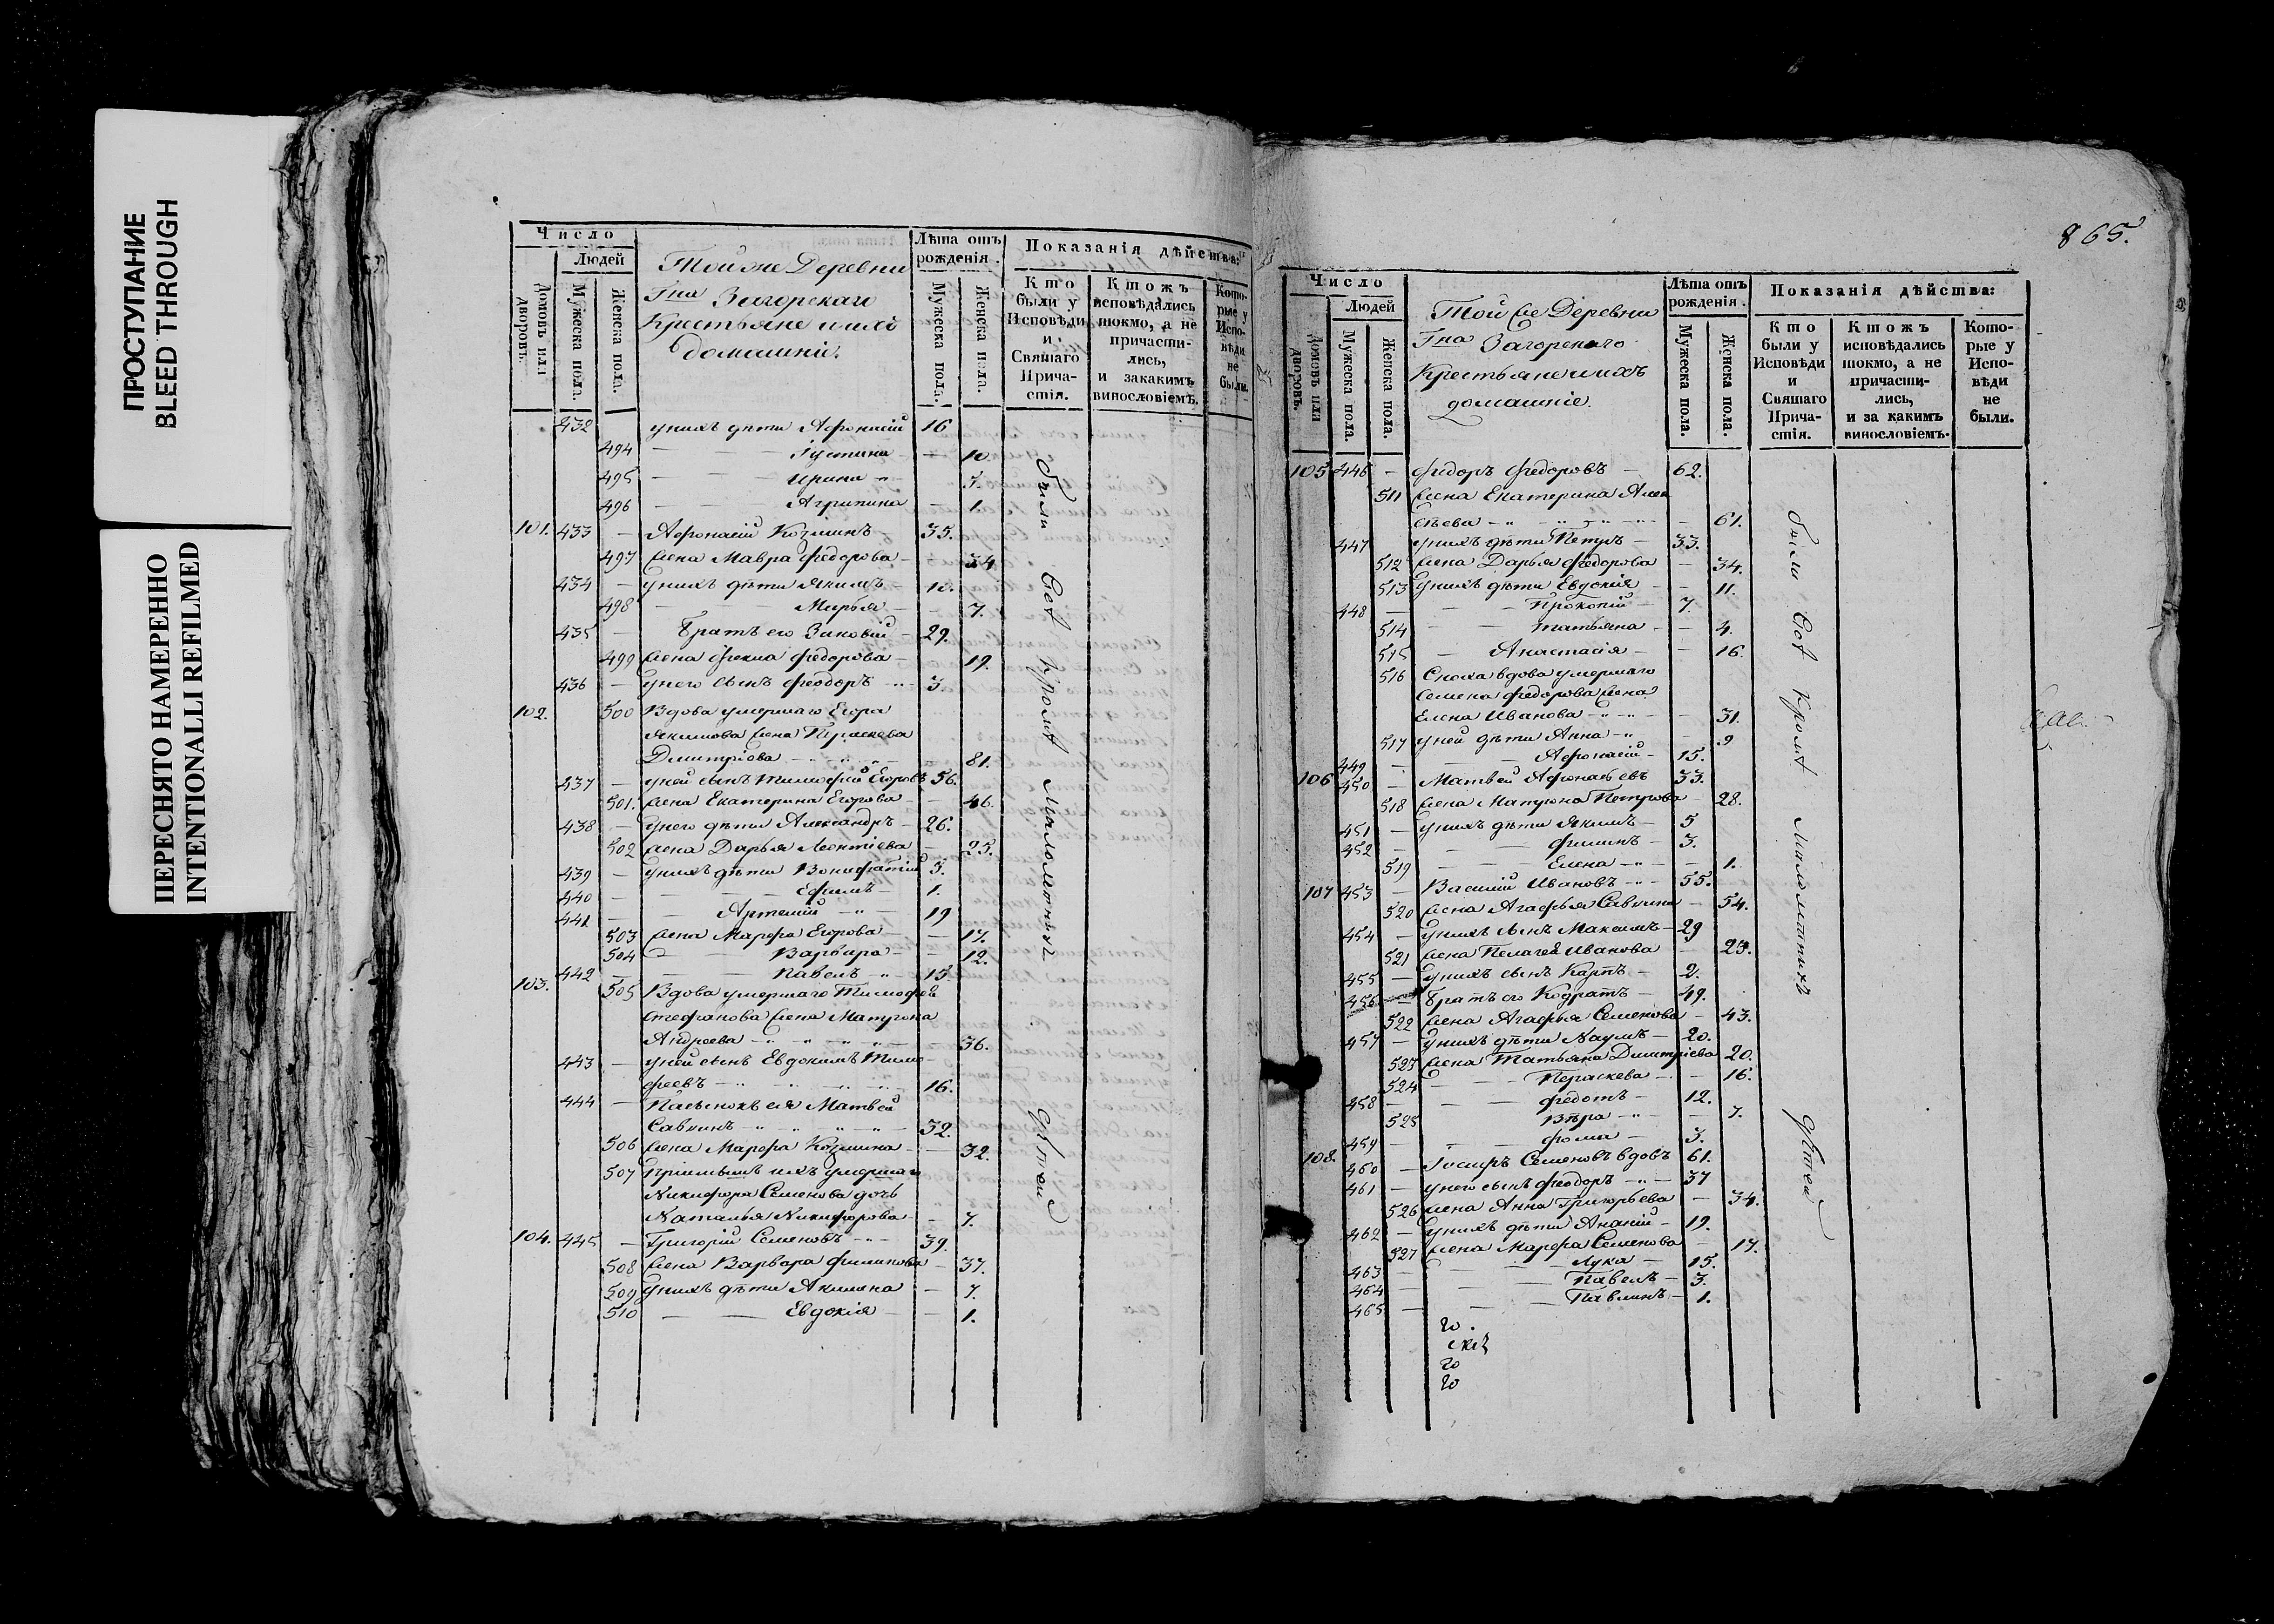 ПРОСТУПАНИЕ
BLEED THROUGH
ПЕРЕСНЯТО НАМЕРЕННО
INTENTIONALLI REFILMED
Число
Людей
Домовъ или дворовъ.
Мужеска пола.
Женска пола.
Той же Деревни
Гна Загорскаго
Крестьяне и ихъ
домашніе.
Лѣта отъ рожденія.
Мужеска пола.
Женска пола.
Показанія дѣйства:
Кто были у Исповѣди и Святаго Причастія.
Ктожъ исповѣдались токмо, а не причастились, и закакимъ винословіемъ.
Которые у Исповѣди не были.
432 у нихъ дѣти Афонасій 16
494 — Іустина — 10.
495 — Ирина —
496 — Агрипина — 1.
101. 433 — Афонасій Козминъ — 35.
497 Жена Мавра Федорова — 34
434 — у нихъ дѣти Якимъ — 10.
498 — Марья — 7.
435 — Братъ его Зиновій — 29.
499 Жена Фекла Федорова — 19.
436 — у него сынъ Феодоръ — 3
102. 500 Вдова умершаго Егора
Якимова Жена Параскева
Димитріева — 81.
437 — у ней сынъ Тимофей Егоровъ 56.
501. Жена Екатерина Егорова — 46.
438 — у него дѣти Александръ — 26.
502 Жена Дарья Леонтіева — 25.
439 — у нихъ дѣти Вонифатій 3.
440 — Ефимъ — 1.
441 — Артемій — 19
503 Жена Марфа Егорова — 17.
504 — Варвара — 12.
442 — Павелъ — 15
103. 505 Вдова умершаго Тимофея
Стефанова Жена Матрона
Андреева — 36.
443 — у ней сынъ Евдокимъ Тимо-
феевъ — 16.
444 — Пасынокъ ея Матвей
Савинъ — 32.
506 Жена Марфа Козмина — 32.
507 Пріимышъ ихъ умершаго
Никифора Семенова дочь
Наталья Никифорова — 7.
104. 445 — Григорій Семеновъ — 39.
508 Жена Варвара Филипова — 37.
509 у нихъ дѣти Акилина — 7.
510 — Евдокія — 1.
были Всѣ кромѣ малолѣтныхъ дѣтей
865.
Число
Людей
Домовъ или дворовъ.
Мужеска пола.
Женска пола.
Той же Деревни
Гна Загорскаго
Крестьяне и ихъ
домашніе.
Лѣта отъ рожденія.
Мужеска пола.
Женска пола.
Показанія дѣйства:
Кто были у Исповѣди и Святаго Причастія.
Ктожъ исповѣдались токмо, а не причастились, и за какимъ винословіемъ.
Которые у Исповѣди не были.
105 446 — Федоръ Федоровъ — 62.
511 Жена Екатерина Алек
сѣева — 61.
447 у нихъ дѣти Петръ — 33.
512 Жена Дарья Федорова — 34.
513 у нихъ дѣти Евдокія — 11.
448 — Прокопій — 7.
514 — Татьяна — 4.
515 — Анастасія — 16.
516 Сноха вдова умершаго
Семена Федорова Жена
Елена Иванова — 31.
517 у ней дѣти Анна — 9
449 — Афонасій — 15.
106 450 — Матвей Афонасьевъ 33.
518 Жена Матрона Петрова — 28.
451 — у нихъ дѣти Якимъ — 5
452 — Филипъ — 3.
519 — Елена — 1.
107 453 — Василій Ивановъ — 55.
520 Жена Агафья Савина — 54.
454 — у нихъ сынъ Максимъ — 29
521 Жена Пелагея Иванова 23.
455 — у нихъ сынъ Карпъ — 2.
456 — Братъ его Кодратъ — 49.
522 Жена Агафья Семенова — 43.
457 — у нихъ дѣти Наумъ — 20.
523 Жена Татьяна Димитріева 20.
524 — Параскева — 16.
458 — Федотъ — 12.
525 — Вѣра — 7.
459 — Фома — 3.
108. 460 — Іосифъ Семеновъ вдовъ 61.
461 — у него сынъ Феодоръ — 37
526 Жена Анна Григорьева — 34.
462 — у нихъ дѣти Ананій — 19.
527 Жена Марфа Семенова — 17.
463 — Лука — 15.
464 — Павелъ — 3.
465 — Павлинъ — 1.
были Всѣ кромѣ малолѣтныхъ дѣтей